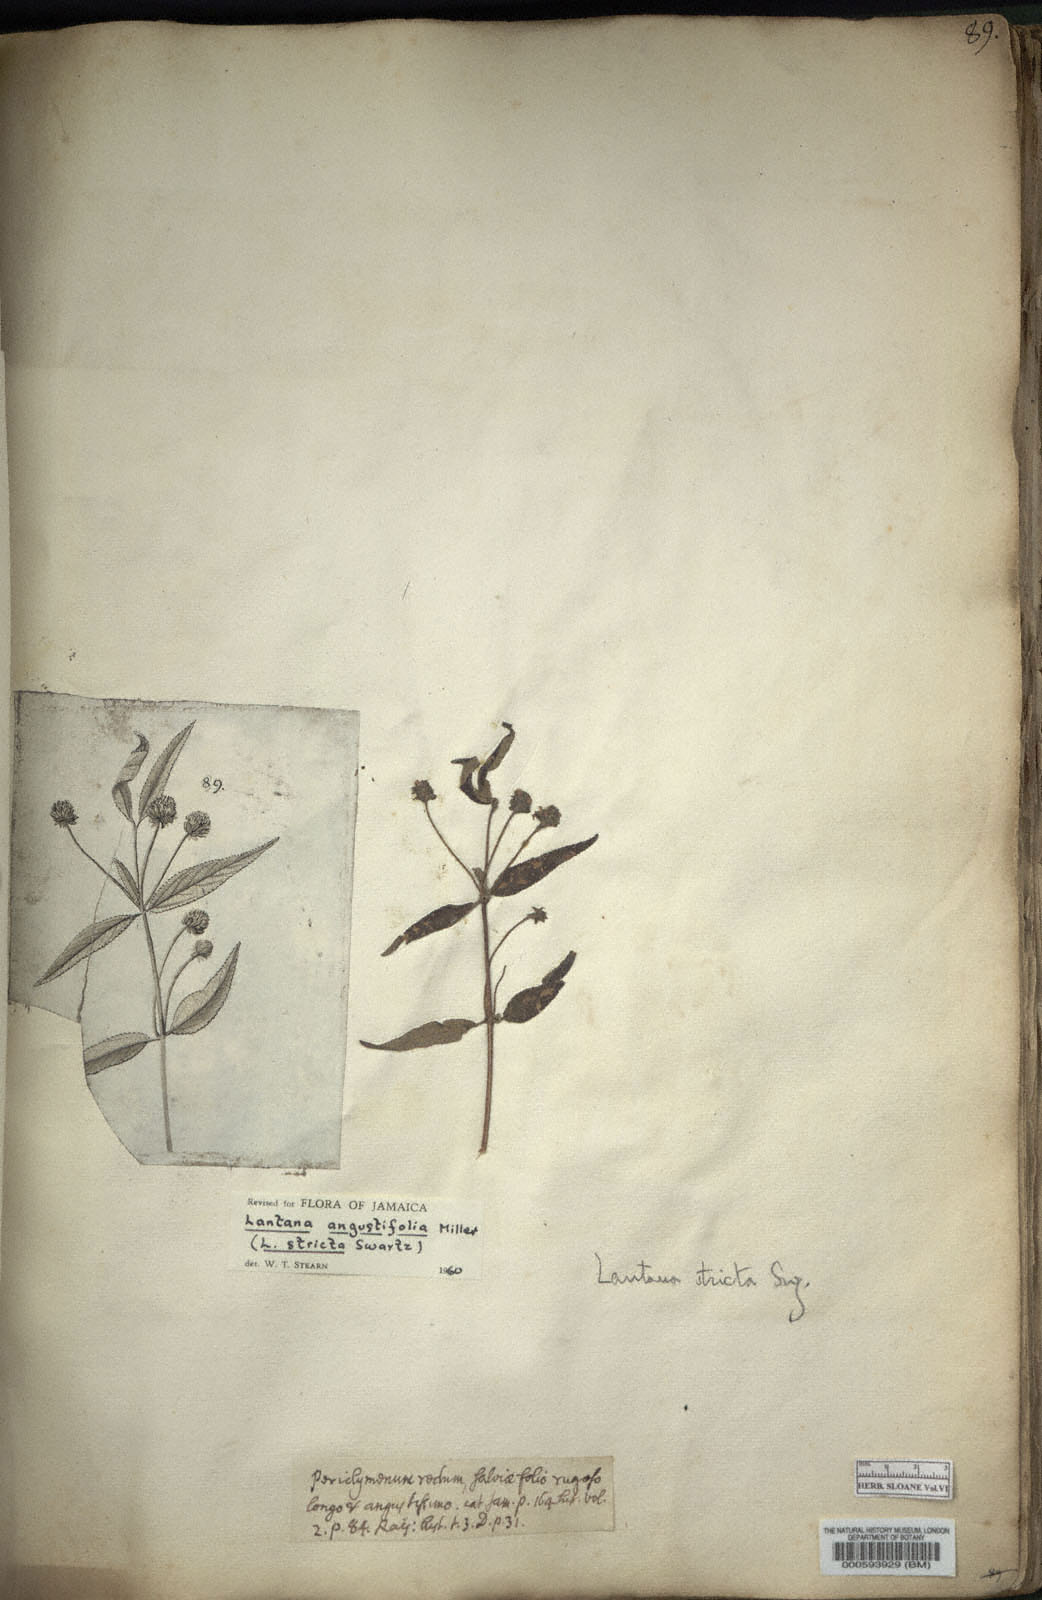 89.
89.
Revised for FLORA OF JAMAICA
Lantana angustifolia Miller
(L. stricta Swartz)
det. W. T. STEARN 1960
Lantana stricta Sw.
Periclymenum rectum, salviæ folio rugoso
longo & angustissimo. cat. Jam. p. 164. hist. vol.
2. p. 84. Raij: hist. t. 3. D. p. 31.
HERB. SLOANE Vol. VI
THE NATURAL HISTORY MUSEUM, LONDON
DEPARTMENT OF BOTANY
000593929 (BM)